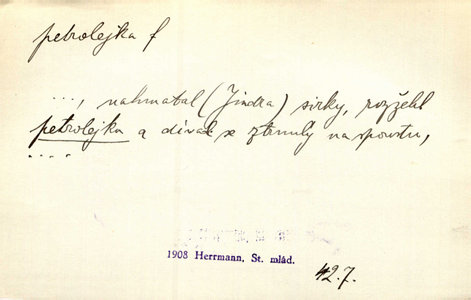 petrolejka f
..., nahmatal (Jindra) sirky, rozžehl
petrolejku a díval se ztrnuly na spoustu,
....
1908 Herrmann, St. mlád.
42.7.